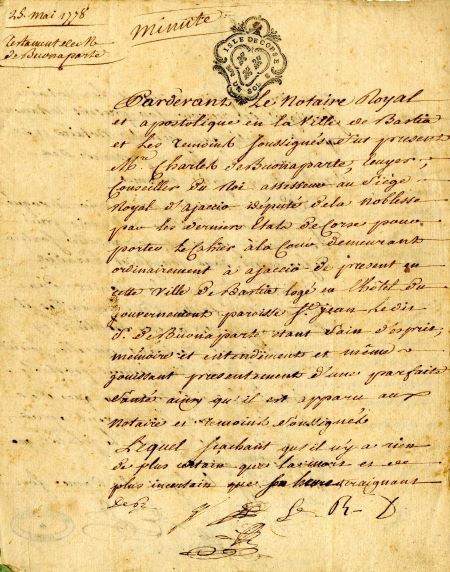 25. mai 1778
Testament de Mr
de Buonaparte
Minute
ISLE DE CORSE
SOLS
Pardevant Le Notaire Royal
et apostolique en la Ville de Bastia
et Les temoins soussignés fut present
Mre Charles de Buonaparte, ecuyer,
Conseiller du Roi assesseur au Siége
Royal d'ajaccio député dela noblesse
par les derniers Etats de Corse pour
porter le Cahier àla Cour demeurant
ordinairement à ajaccio de present en
cette Ville de Bastia logé en l'hôtel du
Gouvernement paroisse St jean Le dit
S. de Buonaparte etant Sain d'esprit,
mémoire et entendement et même
jouissant presentement d'une parfaite
Santé ainsy qu'il est apparu aux
Notaire et temoins Soussignés
Lequel scachant qu'il n'y a rien
de plus certain que la mort et de
plus incertain que son heure craignant
de